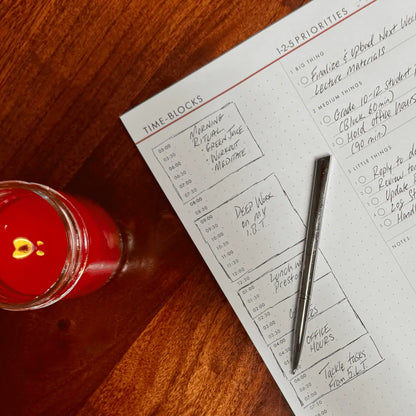 TIME-BLOCKS
05:00
05:30
06:00
06:30
07:00
07:30
08:00
08:30
09:00
09:30
10:00
10:30
11:00
11:30
12:00
12:30
01:00
01:30
02:00
02:30
03:00
03:30
04:00
04:30
05:00
05:30
06:00
MORNING
RITUAL
• GREEN JUICE
• WORKOUT
• MEDITATE
DEEP WORK
ON MY
1.B.T.
LUNCH w/
OFFICE
HOURS
Tackle tasks
from 5.L.T.
1-2-5 PRIORITIES
1 BIG THING
Finalize & Upload Next Wee
Lecture Materials
2 MEDIUM THINGS
Grade 10-12 student
(Block 60 min)
Hold office hours
(90 min)
5 LITTLE THINGS
Reply to
Review
Update
Log
NOTES